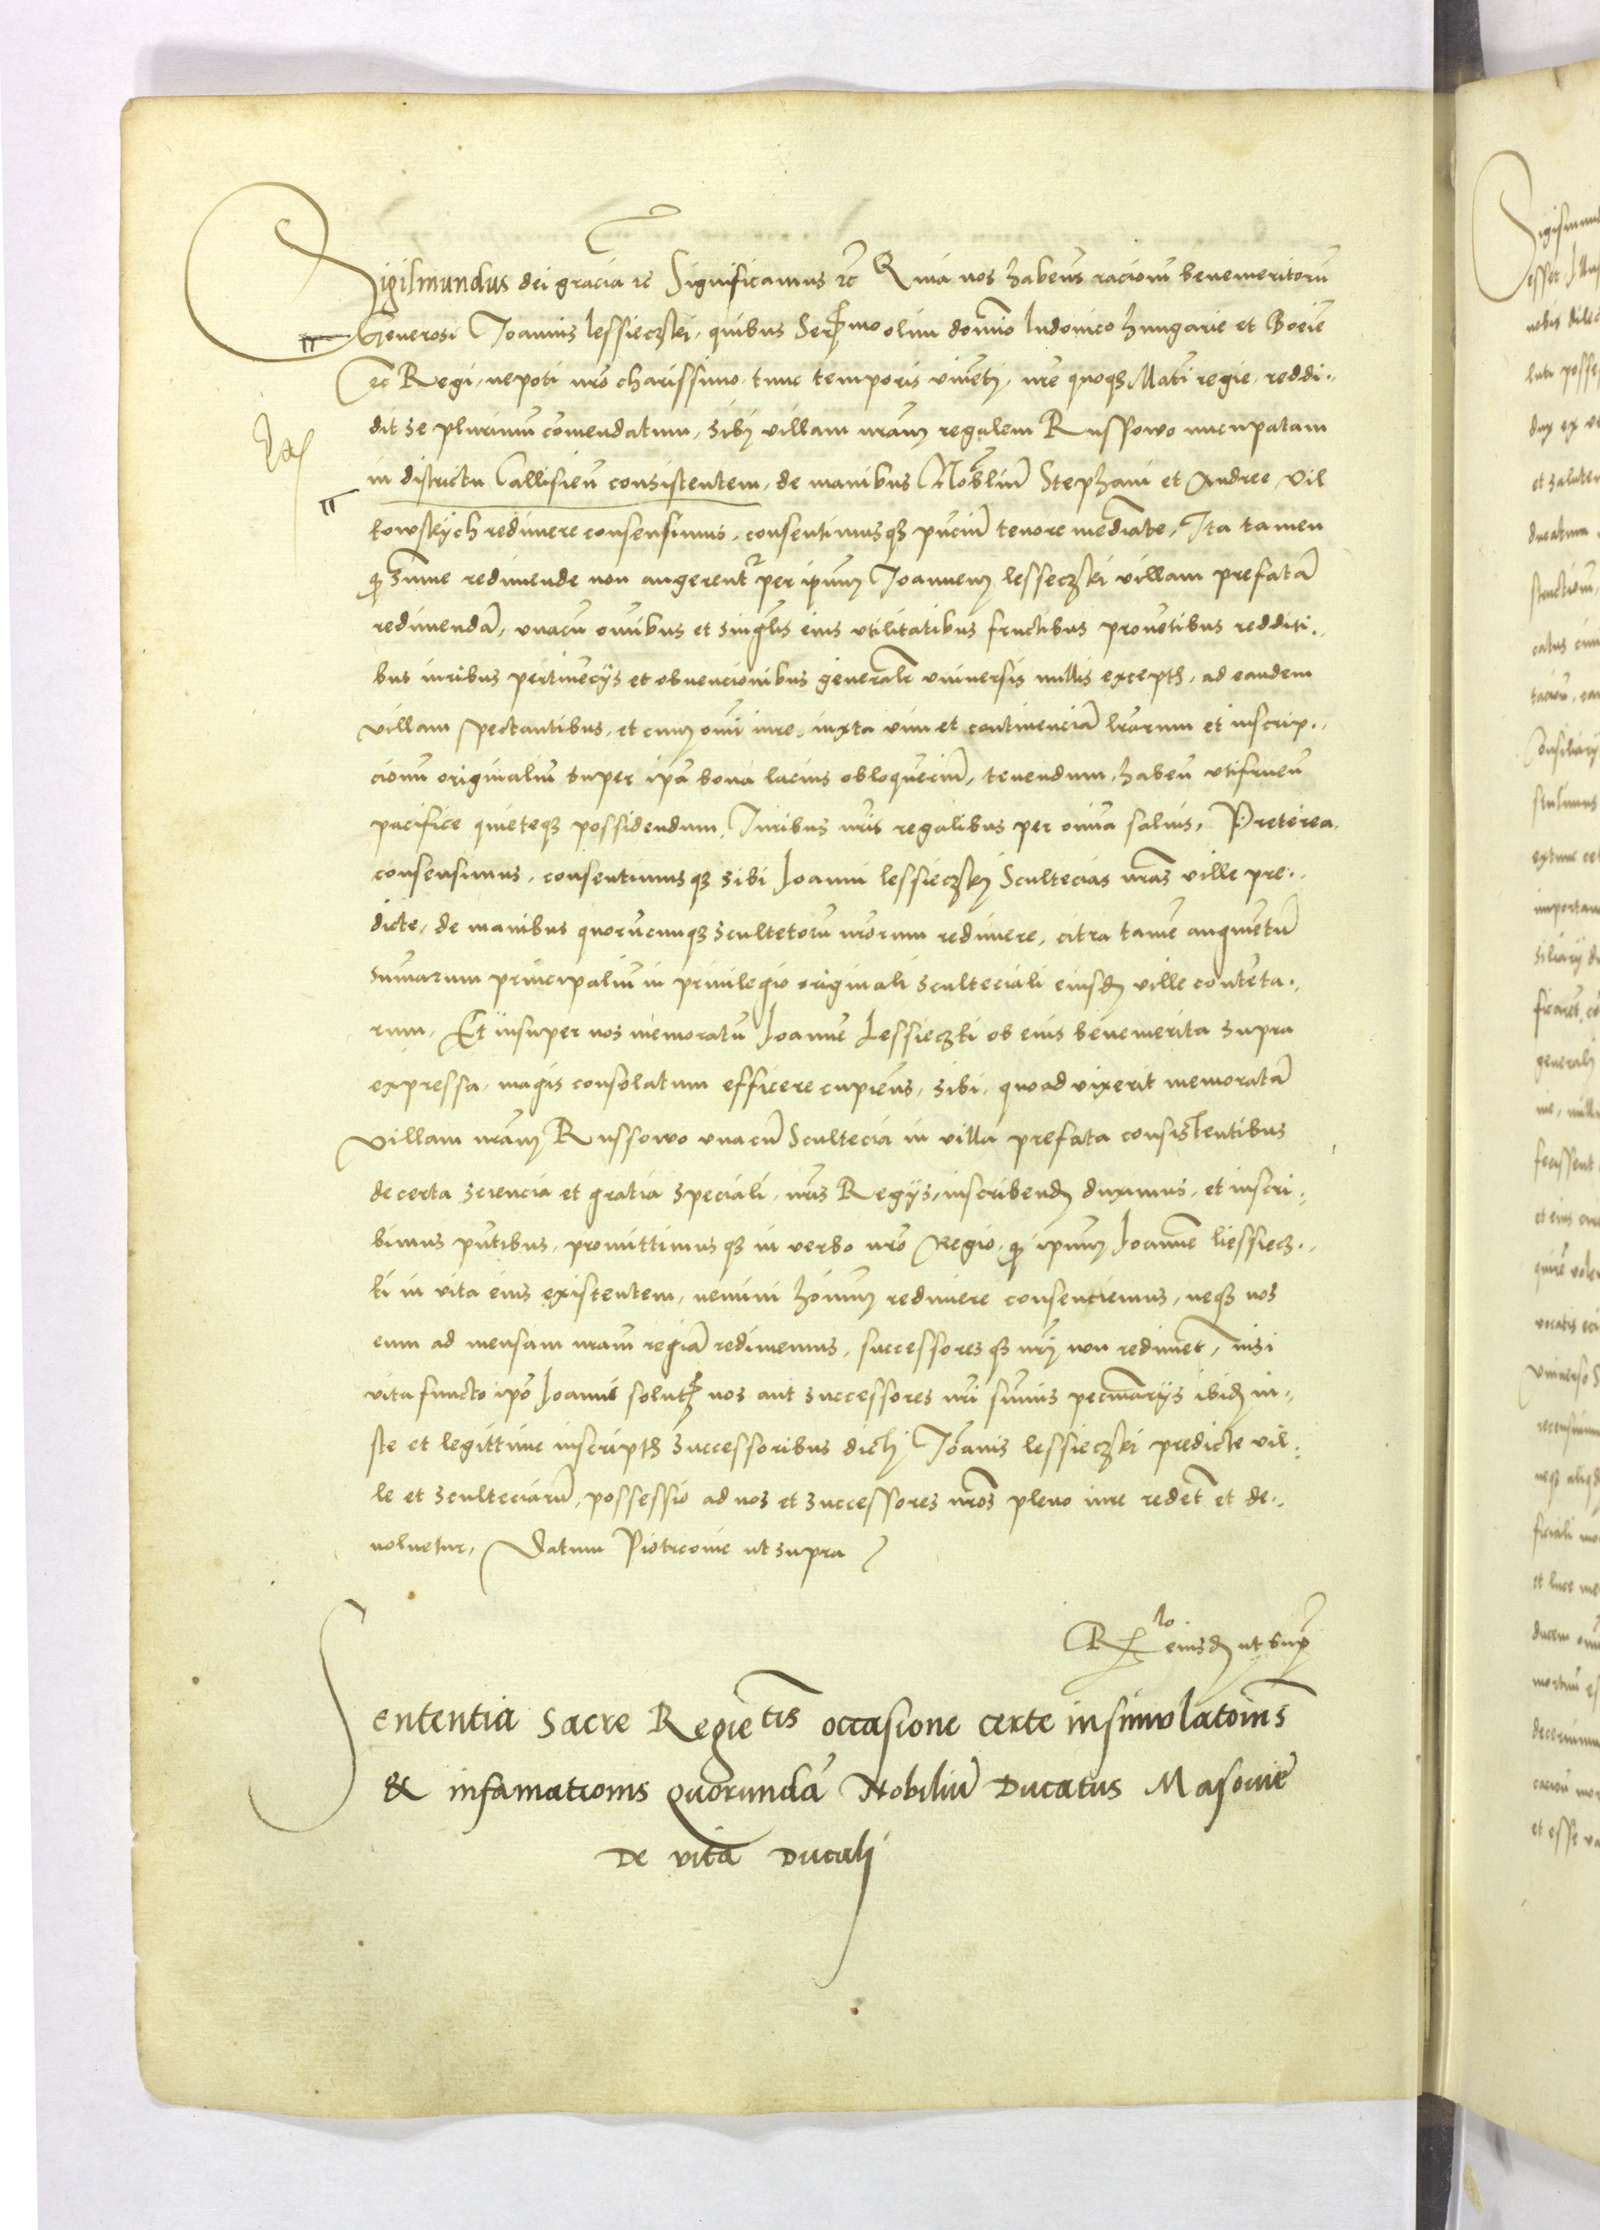 Sigismundus dei gracia etc Significamus etc Quia nos habentes racionem benemeritorum
Generosi Joannis lessieczski, quibus Sermo olim domino ludovico hungarie et Boeie
etc Regi, nepoti nro charissimo, tunc temporis viventi, nre quoque Mati regie, reddi-
dit se plurimum comendatum, sibi villam nram regalem Russowo nucupatam
in districtu Callisien consistentem, de manibus Nobilium Stephani et Andree Vil
kowskych redimere consensimus, consentimusque pncium tenore mediate, Ita tamen
quod summe redimende non augerentur per ipsum Joannem lesseczski villam prefatam
redimendam, unacum omnibus et singulis eius utilitatibus fructibus proventibus redditi-
bus iuribus pertinenciis et obvencionibus generalr universis nullis exceptis, ad eandem
villam spectantibus, et cum omni iure, iuxta vim et continenciam lrarum et inscrip-
cionum originalium super ipsa bona lacius obloquencium, tenendum, haben utifruen
pacifice quieteque possidendum, Iuribus nris regalibus per omnia salvis, Preterea
consensimus, consentimusque sibi Joanni lessieczski Scultecias nras ville pre-
dicte, de manibus quorumcumque scultetorum nrorum redimere, citra tamen augmentum
summarum principalium in privilegio originali scultetiali eiusdem ville contenta-
rum, Et insuper nos memoratum Joannem Lessieczki ob eius benemerita supra
expressa, magis consolatum efficere cupientes, sibi, quoad vixerit memoratam
villam nram Russowo unacum Scultecia in villa prefata consistentibus
de certa sciencia et gratia speciali, nris Regiis, inscribendum duximus, et inscri-
bimus pntibus, promittimusque in verbo nro Regio, quod ipsum Joannem liessiecz-
ki in vita eius existentem, nemini hominum redimere consenciemus, neque nos
eum ad mensam nram regiam redimemus, successoresque nri non rediment, nisi
vita functo ipso Joanne solutis per nos aut successores nri summis pecuniariis ibidem iu-
ste et legittime inscriptis successoribus dicti Joannis lessieczski predicte vil-
le et scultetiarum, possessio ad nos et successores nros pleno iure rediet et de-
volvetur, Datum Piotrcovie ut supra
Rlo eiusdem ut supra
Sententia Sacre Regie Mtis occasione certe insimulationis
& infamationis quorundam Nobilium Ducatus Masovie
De vita Ducali